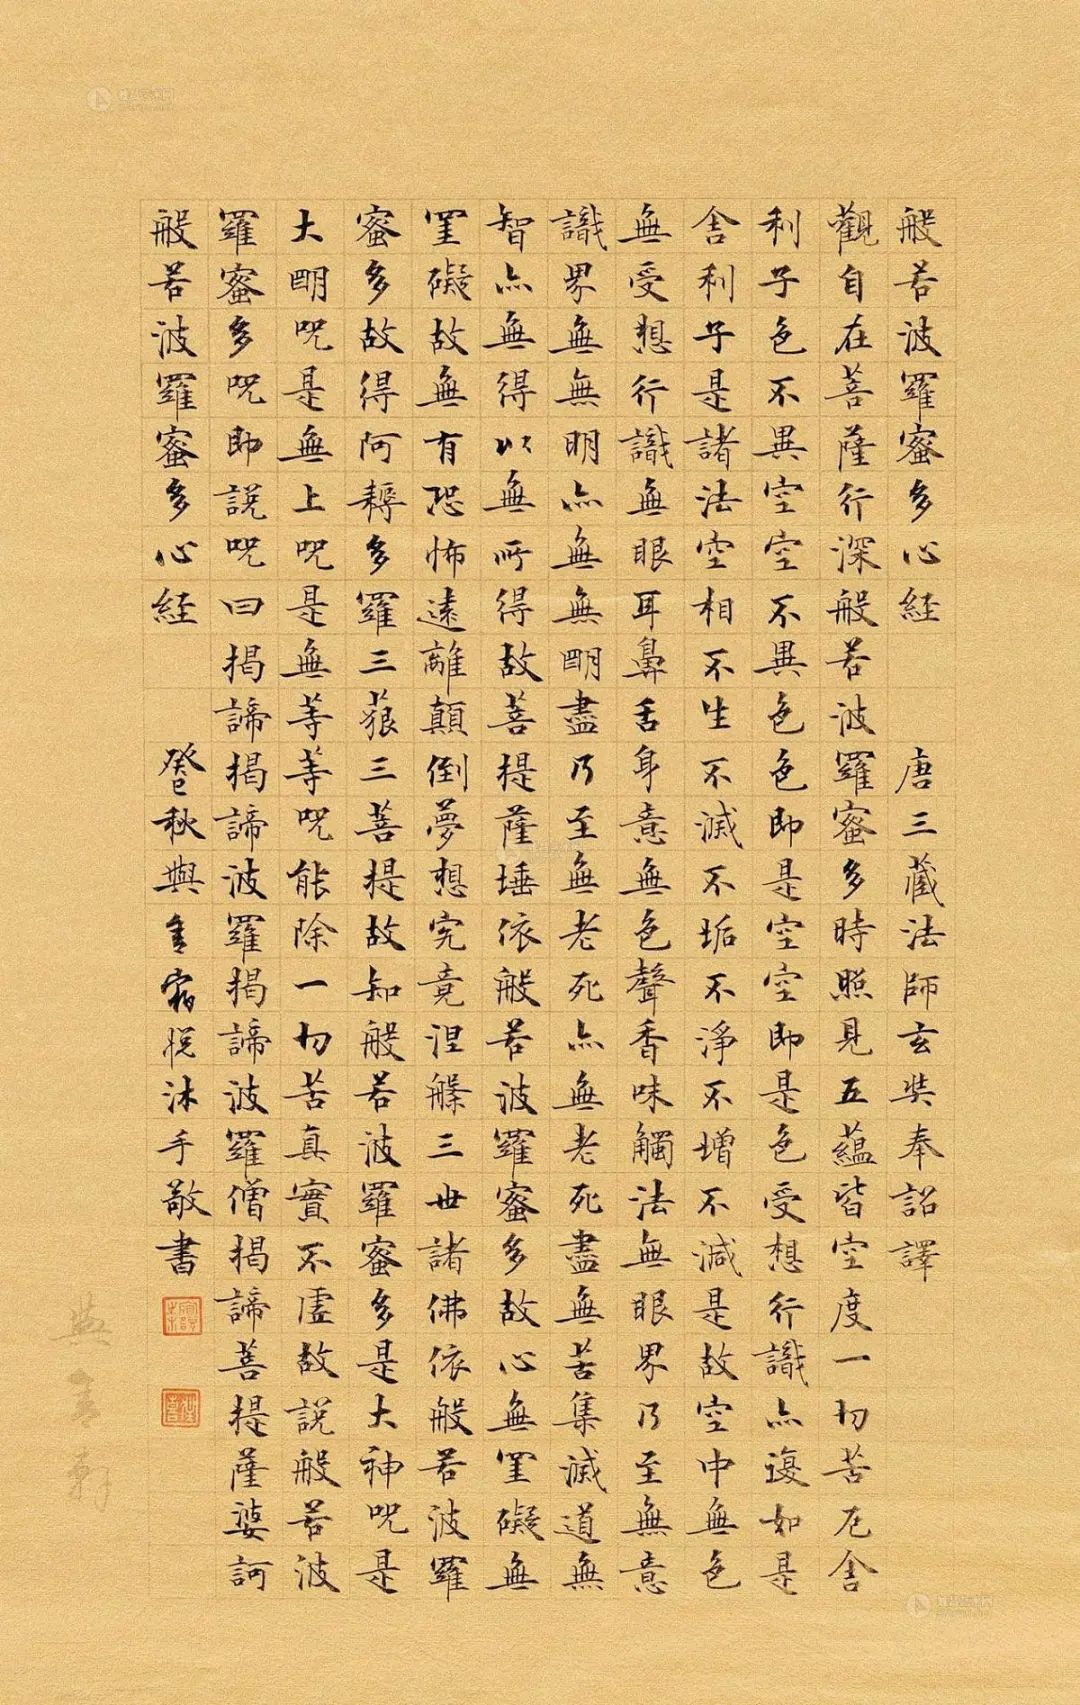 般若波羅蜜多心経 唐三藏法師玄奘奉詔譯
觀自在菩薩行深般若波羅蜜多時照見五蘊皆空度一切苦厄舍
利子色不異空空不異色色即是空空即是色受想行識亦復如是
舍利子是諸法空相不生不滅不垢不淨不增不減是故空中無色
無受想行識無眼耳鼻舌身意無色聲香味觸法無眼界乃至無意
識界無無明亦無無明盡乃至無老死亦無老死盡無苦集滅道無
智亦無得以無所得故菩提薩埵依般若波羅蜜多故心無罣礙無
罣礙故無有恐怖遠離顛倒夢想究竟涅槃三世諸佛依般若波羅
蜜多故得阿耨多羅三藐三菩提故知般若波羅蜜多是大神咒是
大明咒是無上咒是無等等咒能除一切苦真實不虛故說般若波
羅蜜多咒即說咒曰揭諦揭諦波羅揭諦波羅僧揭諦菩提薩婆訶
般若波羅蜜多心経 癸巳秋與悅沐手敬書